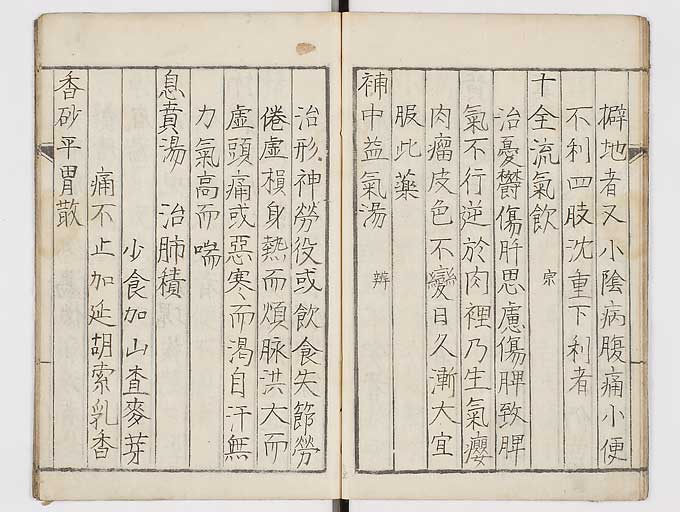 擗地者又小陰病腹痛小便
不利四肢沈重下利者
十全流氣飮 宗
治憂鬱傷肝思慮傷脾致脾
氣不行逆於肉裡乃生氣癭
肉瘤皮色不變日久漸大宜
服此藥
補中益氣湯 辨
治形神勞役或飮食失節勞
倦虛損身熱而煩脉洪大而
虛頭痛或惡寒而渴自汗無
力氣高而喘
息賁湯 治肺積
少食加山査麥芽
痛不止加延胡索乳香
香砂平胃散